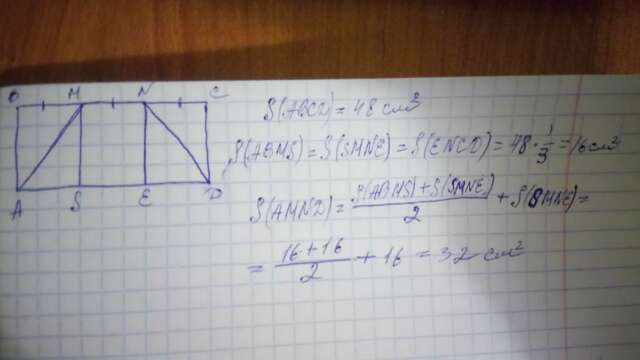 B M N C
A S E D
S(ABCD) = 48 см²
S(ABMS) = S(SMNE) = S(ENCD) = 48 · 1/3 = 16 см²
S(AMND) = S(ABMS) + S(SMNE) / 2 + S(SMNE) =
= 16 + 16 / 2 + 16 = 32 см²